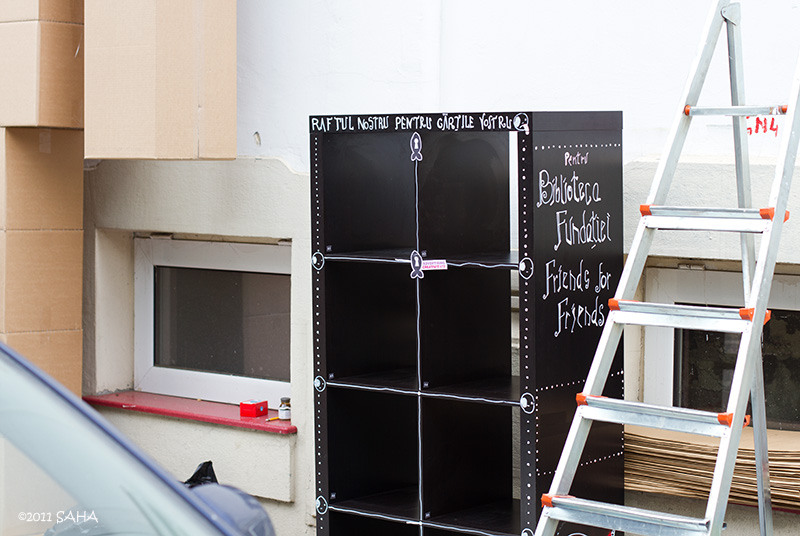 RAFTUL NOSTRU PENTRU CĂRȚILE VOSTRE
Pentru
Biblioteca
Fundației
Friends for
Friends
©2011 SAHA